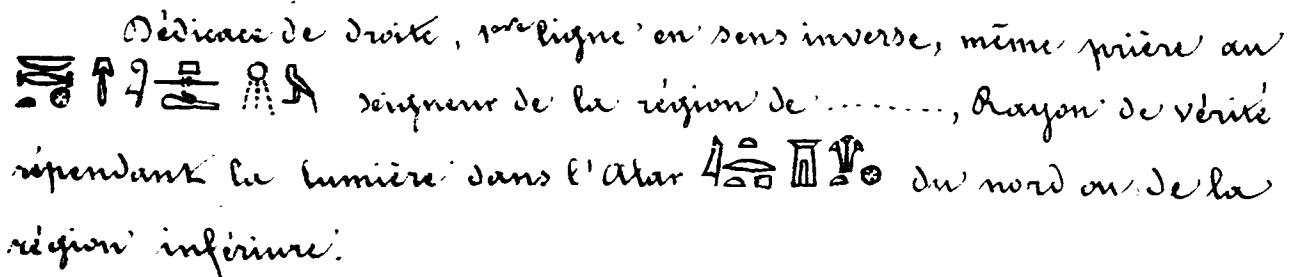 Dédicace de droite, 1ere ligne en sens inverse, même prière au
seigneur de la région de ........., Rayon de vérité
répendant la lumière dans l'Atar du nord ou de la
région inférieure.